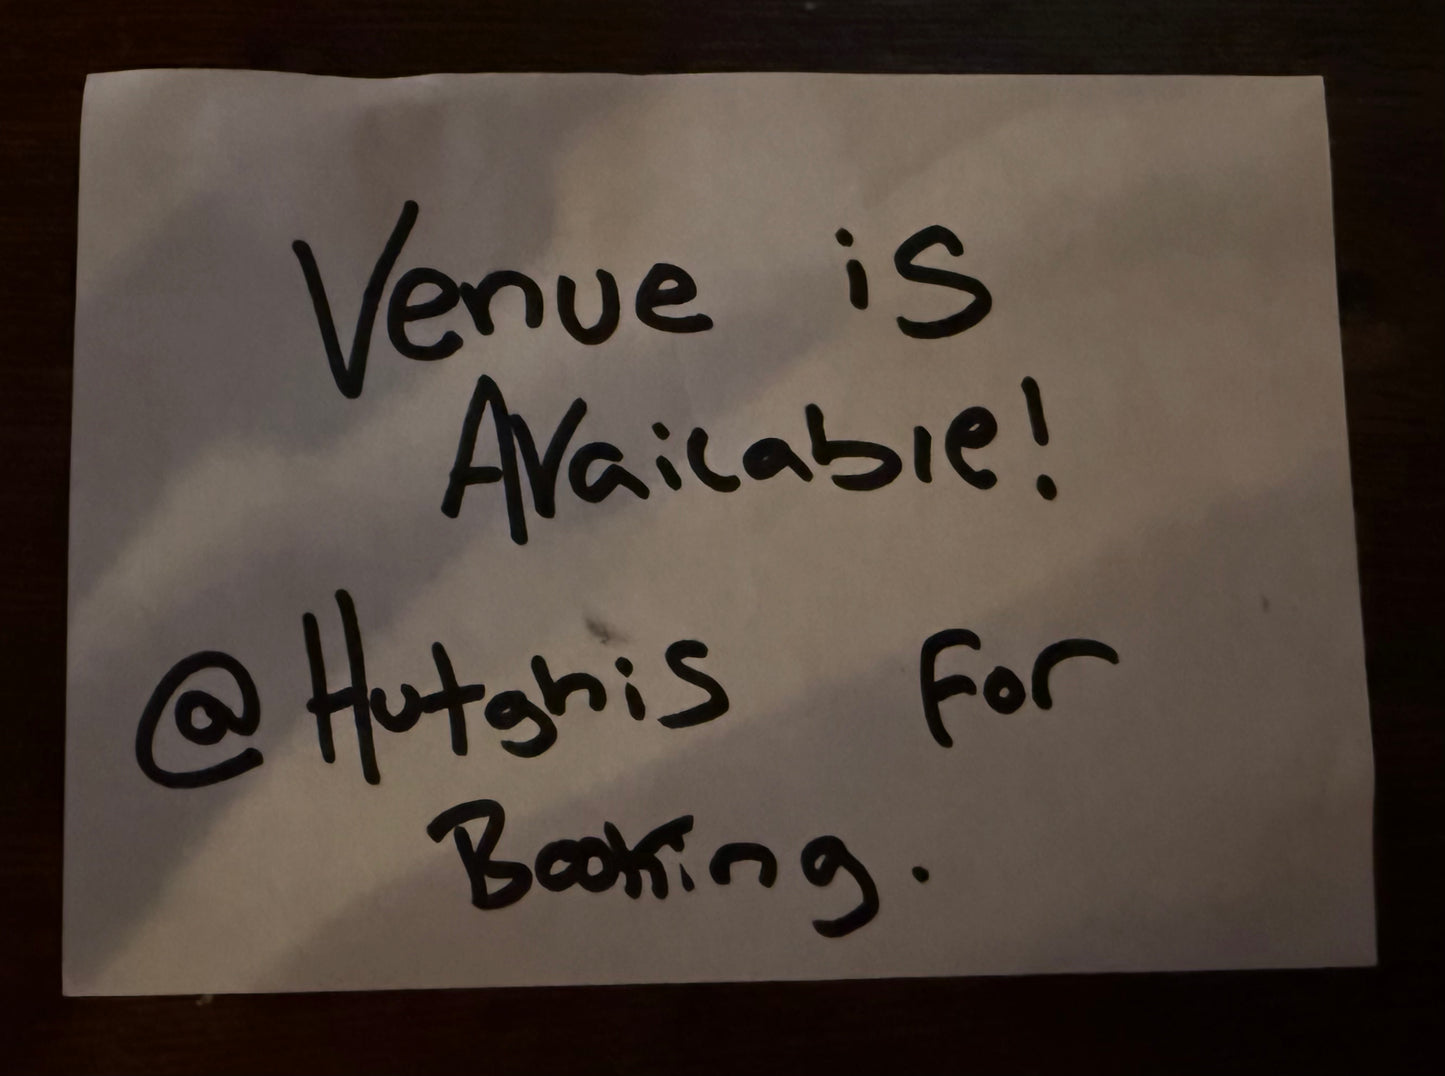 Venue is
Available!
@Hutghis for
Booking.